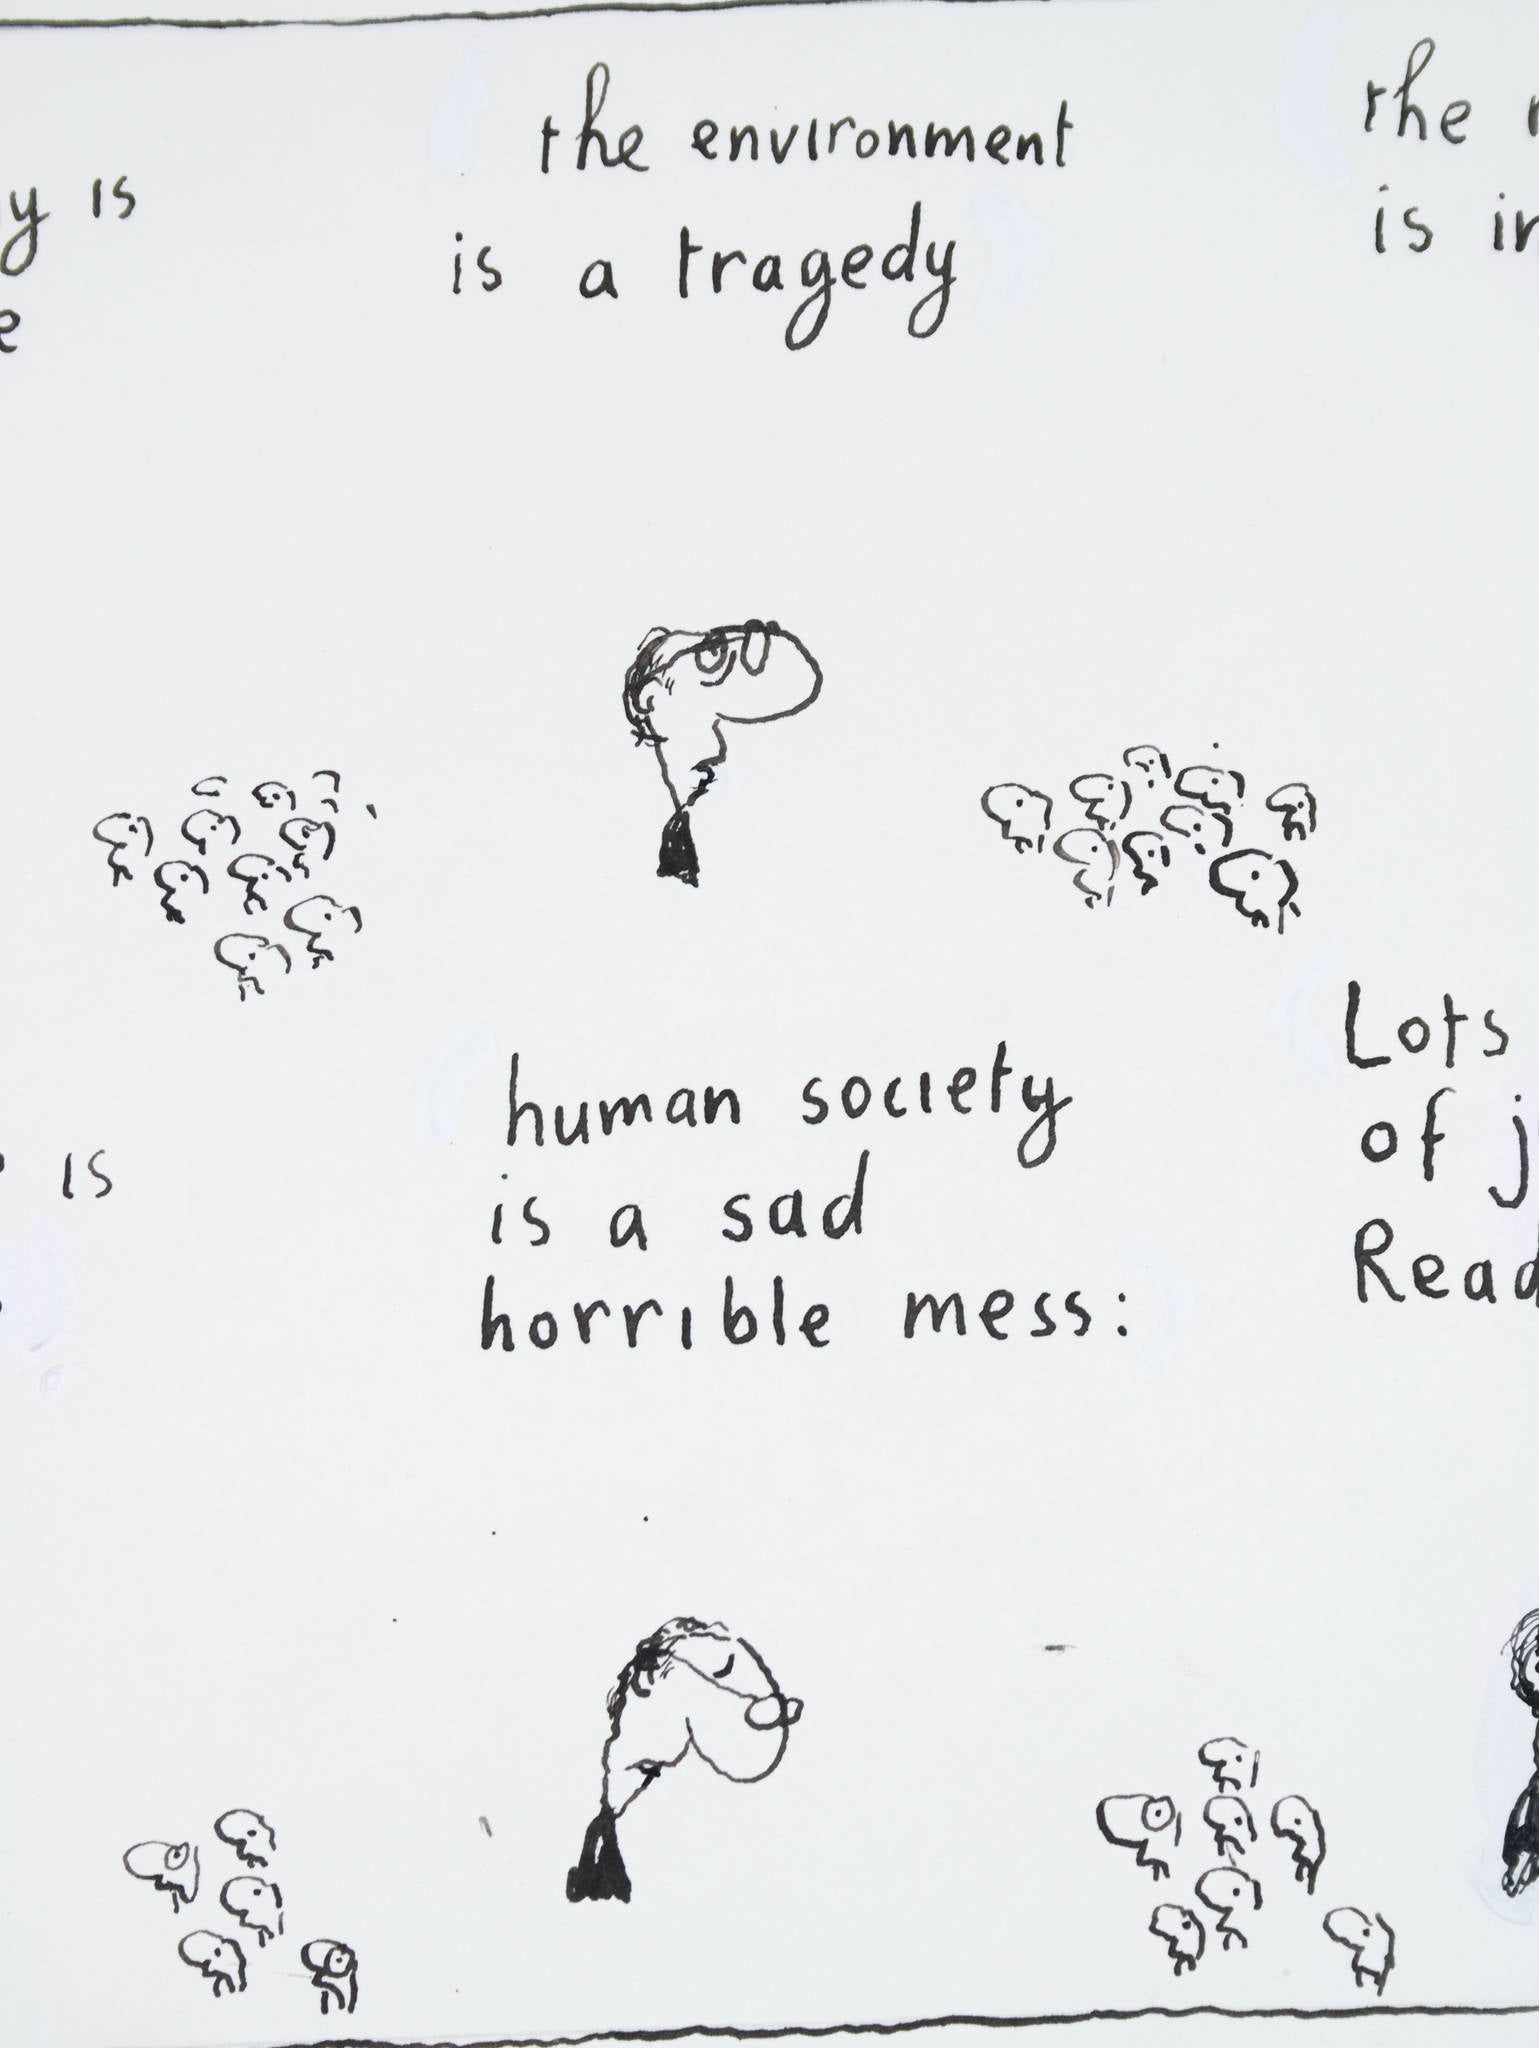 is
the environment
is a tragedy
the
is
human society
is a sad
horrible mess:
is
Lots
of